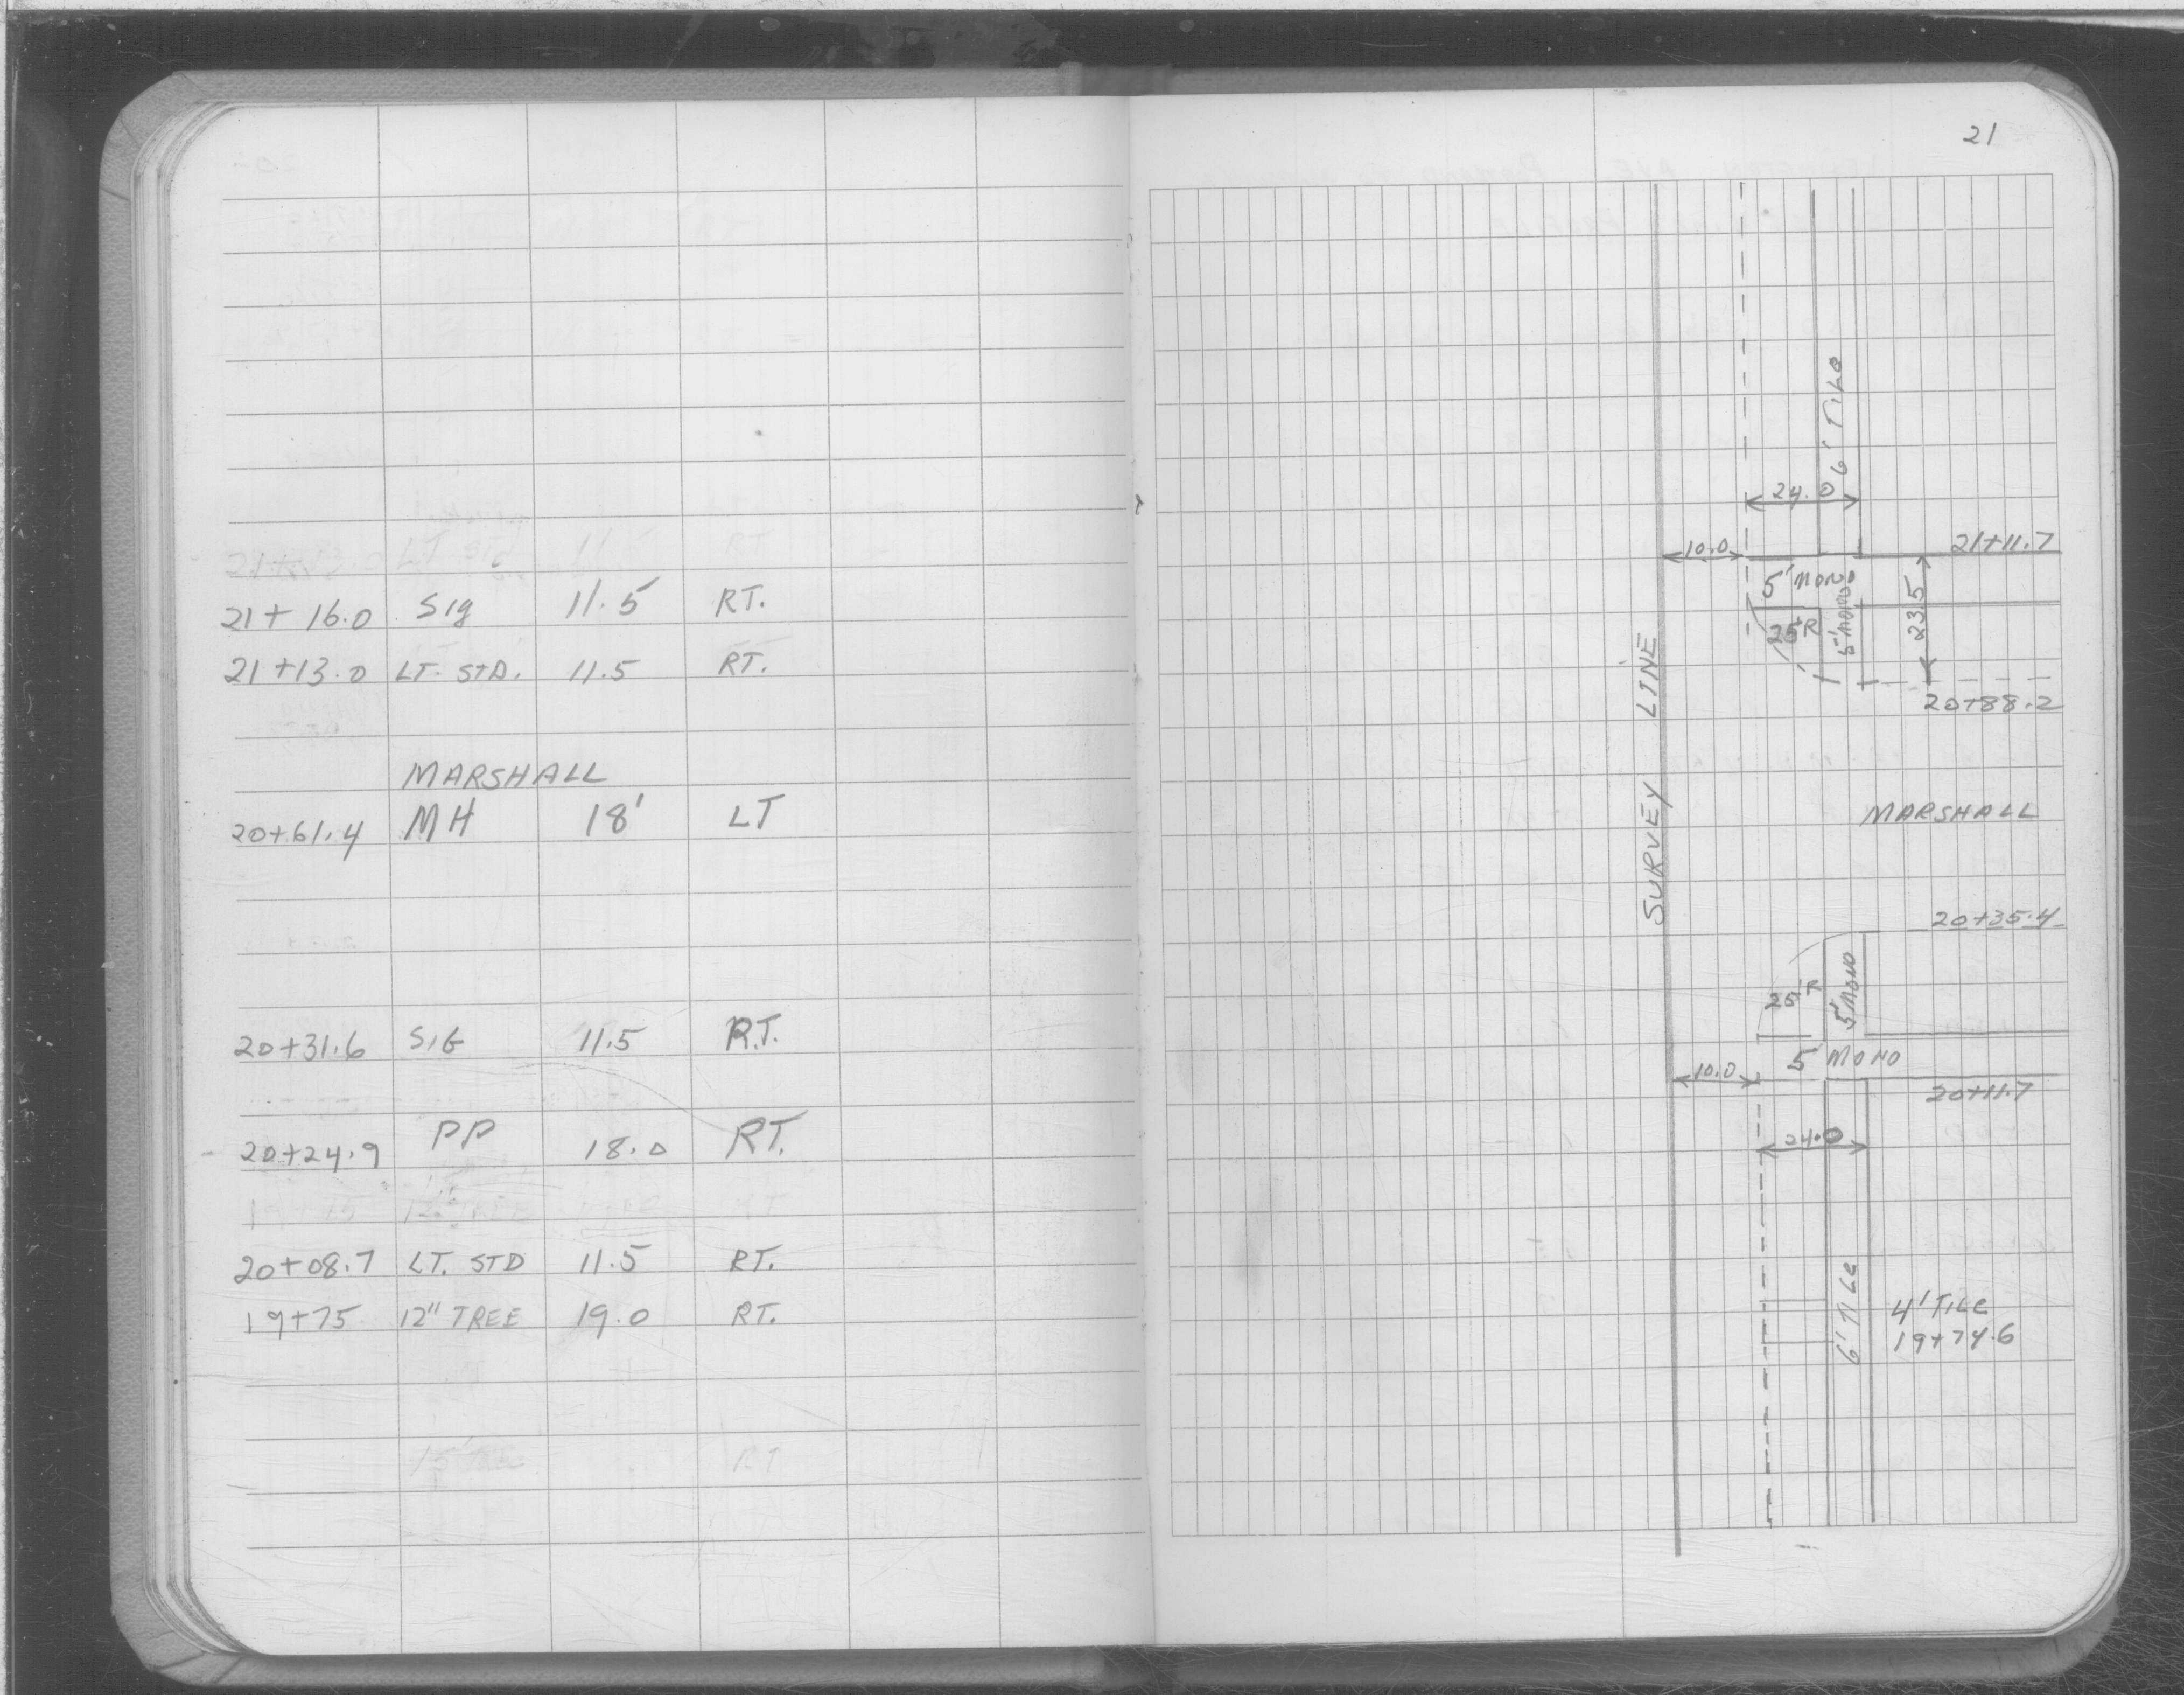 21+16.0 Sig 11.5 RT.
21+13.0 LT. STD. 11.5 RT.
MARSHALL
20+61.4 MH 18' LT
20+31.6 SIG 11.5 R.T.
20+24.9 PP 18.0 RT.
20+08.7 LT. STD 11.5 RT.
19+75 12" TREE 19.0 RT.
21
6' TILE
24.0
10.0
21+11.7
5' MONO
25'R
5' MONO
23.5
20+88.2
SURVEY LINE
MARSHALL
20+35.4
25'R
5' MONO
5' MONO
10.0
20+11.7
24.0
6' TILE
4' TILE
19+74.6